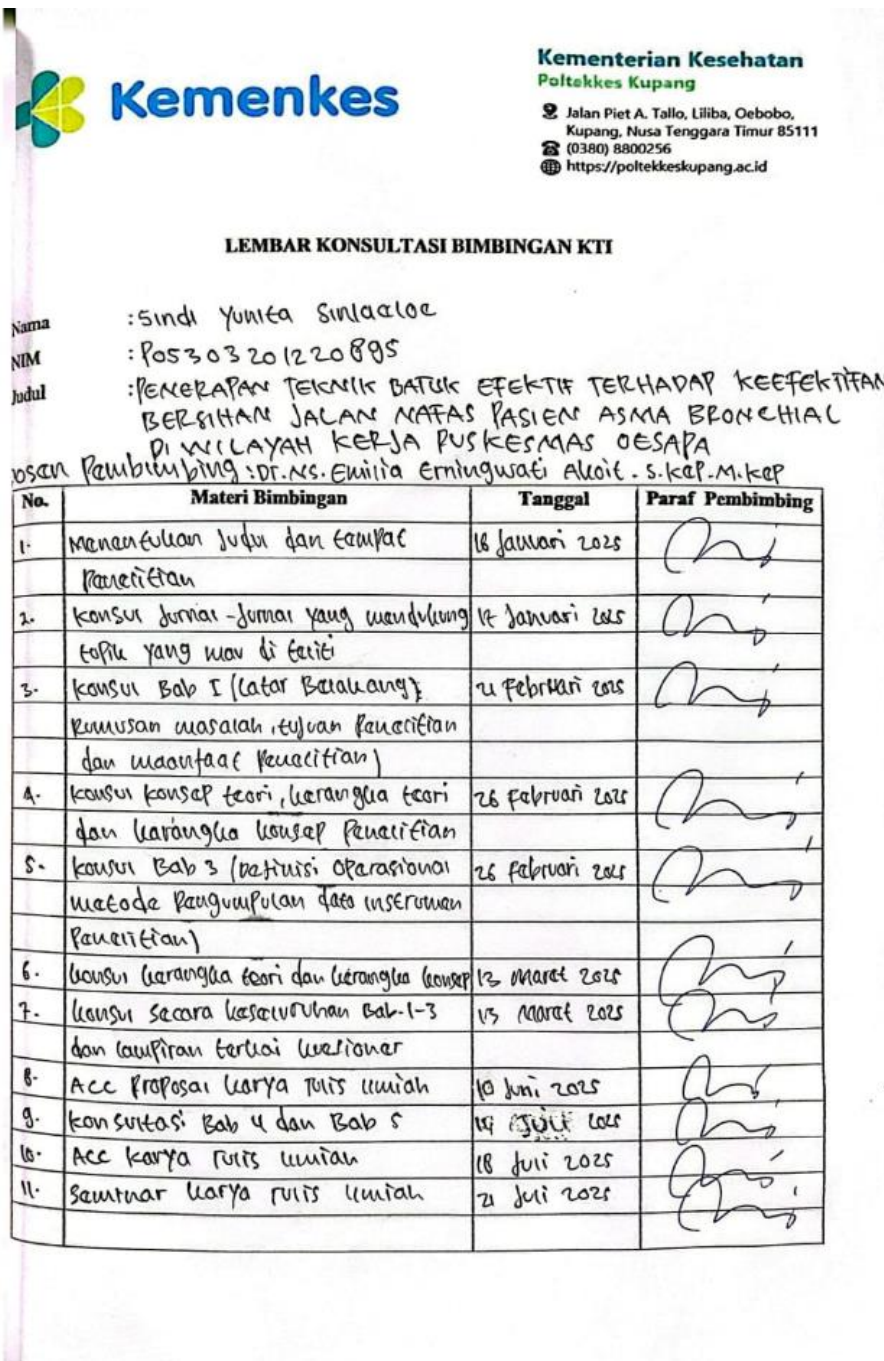 Kemenkes
Kementerian Kesehatan
Poltekkes Kupang
Jalan Piet A. Tallo, Liliba, Oebobo,
Kupang, Nusa Tenggara Timur 85111
(0380) 8800256
https://poltekkeskupang.ac.id
LEMBAR KONSULTASI BIMBINGAN KTI
Nama : Sindi Yunita Sinlaeloe
NIM : PO5303201220895
Judul : PENERAPAN TEKNIK BATUK EFEKTIF TERHADAP KEEFEKTIFAN
BERSIHAN JALAN NAFAS PASIEN ASMA BRONCHIAL
DI WILAYAH KERJA PUSKESMAS OESAPA
osen Pembimbing : Dr. Ns. Emilia Erningwati Akoit . S.Kep . M.Kep
No. Materi Bimbingan Tanggal Paraf Pembimbing
1. Menentukan Judul dan tempat 16 Januari 2025
Penelitian
2. Konsul Jurnal-Jurnal yang mendukung 17 Januari 2025
topik yang mau di teliti
3. Konsul Bab I (Latar Belakang, 21 Februari 2025
Rumusan masalah, tujuan Penelitian
dan manfaat Penelitian)
4. Konsul konsep teori, kerangka teori 26 Februari 2025
dan kerangka konsep Penelitian
5. Konsul Bab 3 (Definisi Operasional 26 Februari 2025
metode Pengumpulan data instrumen
Penelitian)
6. Konsul kerangka teori dan kerangka konsep 13 Maret 2025
7. Konsul secara keseluruhan Bab.1-3 13 Maret 2025
dan lampiran terkai kuesioner
8. Acc Proposal karya tulis ilmiah 10 Juni 2025
9. Konsultasi Bab 4 dan Bab 5 Juli 2025
10. Acc Karya Tulis ilmiah 18 Juli 2025
11. Seminar karya tulis ilmiah 21 Juli 2025